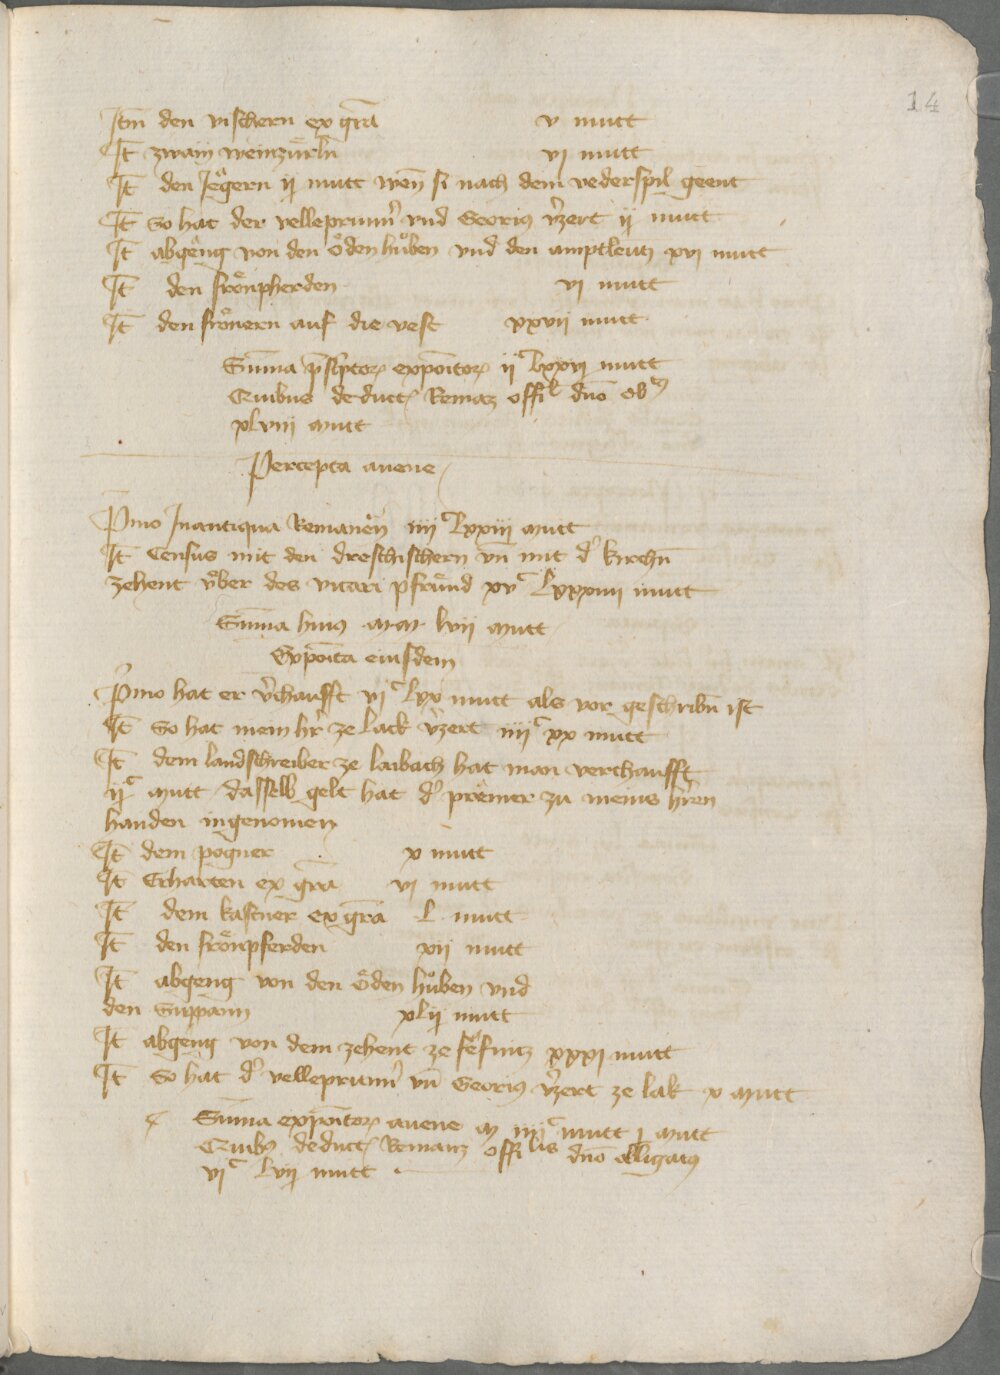 14
Itm̄ den vischern ex gr̄a v mutt
It̄ zwain weinzürln̄ vj mutt
It̄ den Jegern ij mutt wen̄ si nach dem vederspil geent
It̄ So hat der vellepriim̄ vnd Georius v̄zert ij mutt
It̄ abgeng von den oͤden huͦben vnd den amptleutn̄ xvj mutt
It̄ den froͤnpherden vj mutt
It̄ den froͤnern auf die vest xxvii mutt
Sum̄a p̄scptoꝝ expoı̄toꝝ ijᶜ lxxvj mutt
Quibus deduct᷒ Remaꝫ offiᶫ dn̄o obᵐ
xlviij mutt
Percepta auene
Pmo Inantiqua Remanen̄ iiijᶜ lxxiij mutt
It̄ Census mit den dreschischern vn̄ mit d' kirchn̄
zehent vͤber des vicari pfruͤnd xvᶜ lxxxiiij mutt
Sum̄a huiꝰ mm lvii mutt
Expoı̄ta eiusdem
Pmo hat er v̄chaufft vjᶜ lxx mutt als vor geschribn̄ ist
It̄ So hat mein hr̄ ze lack v̄zert iiijᶜ xx mutt
It̄ dem landschreiber ze laibach hat man verchaufft
ijᶜ mutt dasselb gelt hat d' premer zu meins hr̄en
handen ingenomen
It̄ dem pogner x mutt
It̄ Erharten ex gr̄a vj mutt
It̄ dem kastner ex gr̄a l mutt
It̄ den froͤnpferden xij mutt
It̄ abgeng von den oͤden huͦben vnd
den Suppann xlij mutt
It̄ abgeng von dem zehent ze sefnitz xxxj mutt
It̄ So hat d' vellepriim̄ vn̄ Georius v̄zert ze lak x mutt
Sum̄a expoı̄toꝝ auene m iiijᶜ mutt j mutt
Quibꝰ deduct᷒ Remanꝫ offilis dn̄o obligatꝰ
vjᶜ lvij mutt